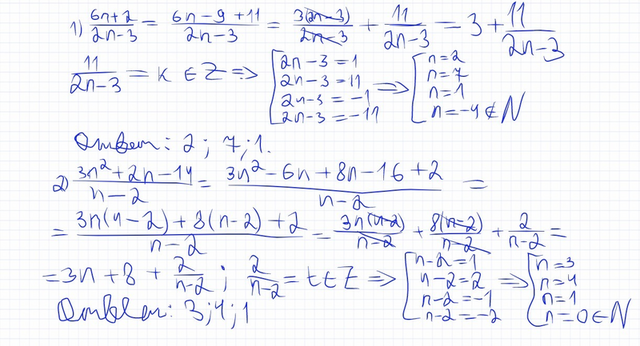 1) (6n+2)/(2n-3) = (6n-9+11)/(2n-3) = 3(2n-3)/(2n-3) + 11/(2n-3) = 3 + 11/(2n-3)
11/(2n-3) = k ∈ Z ⇒ [2n-3=1 ⇒ [n=2
2n-3=11 n=7
2n-3=-1 n=1
2n-3=-11 n=-4 ∉ N
Ответ: 2; 7; 1.
2) (3n²+2n-14)/(n-2) = (3n²-6n+8n-16+2)/(n-2) =
= (3n(n-2)+8(n-2)+2)/(n-2) = 3n(n-2)/(n-2) + 8(n-2)/(n-2) + 2/(n-2) =
= 3n+8+2/(n-2); 2/(n-2) = t ∈ Z ⇒ [n-2=1 ⇒ [n=3
n-2=2 n=4
n-2=-1 n=1
n-2=-2 n=0 ∈ N
Ответ: 3; 4; 1